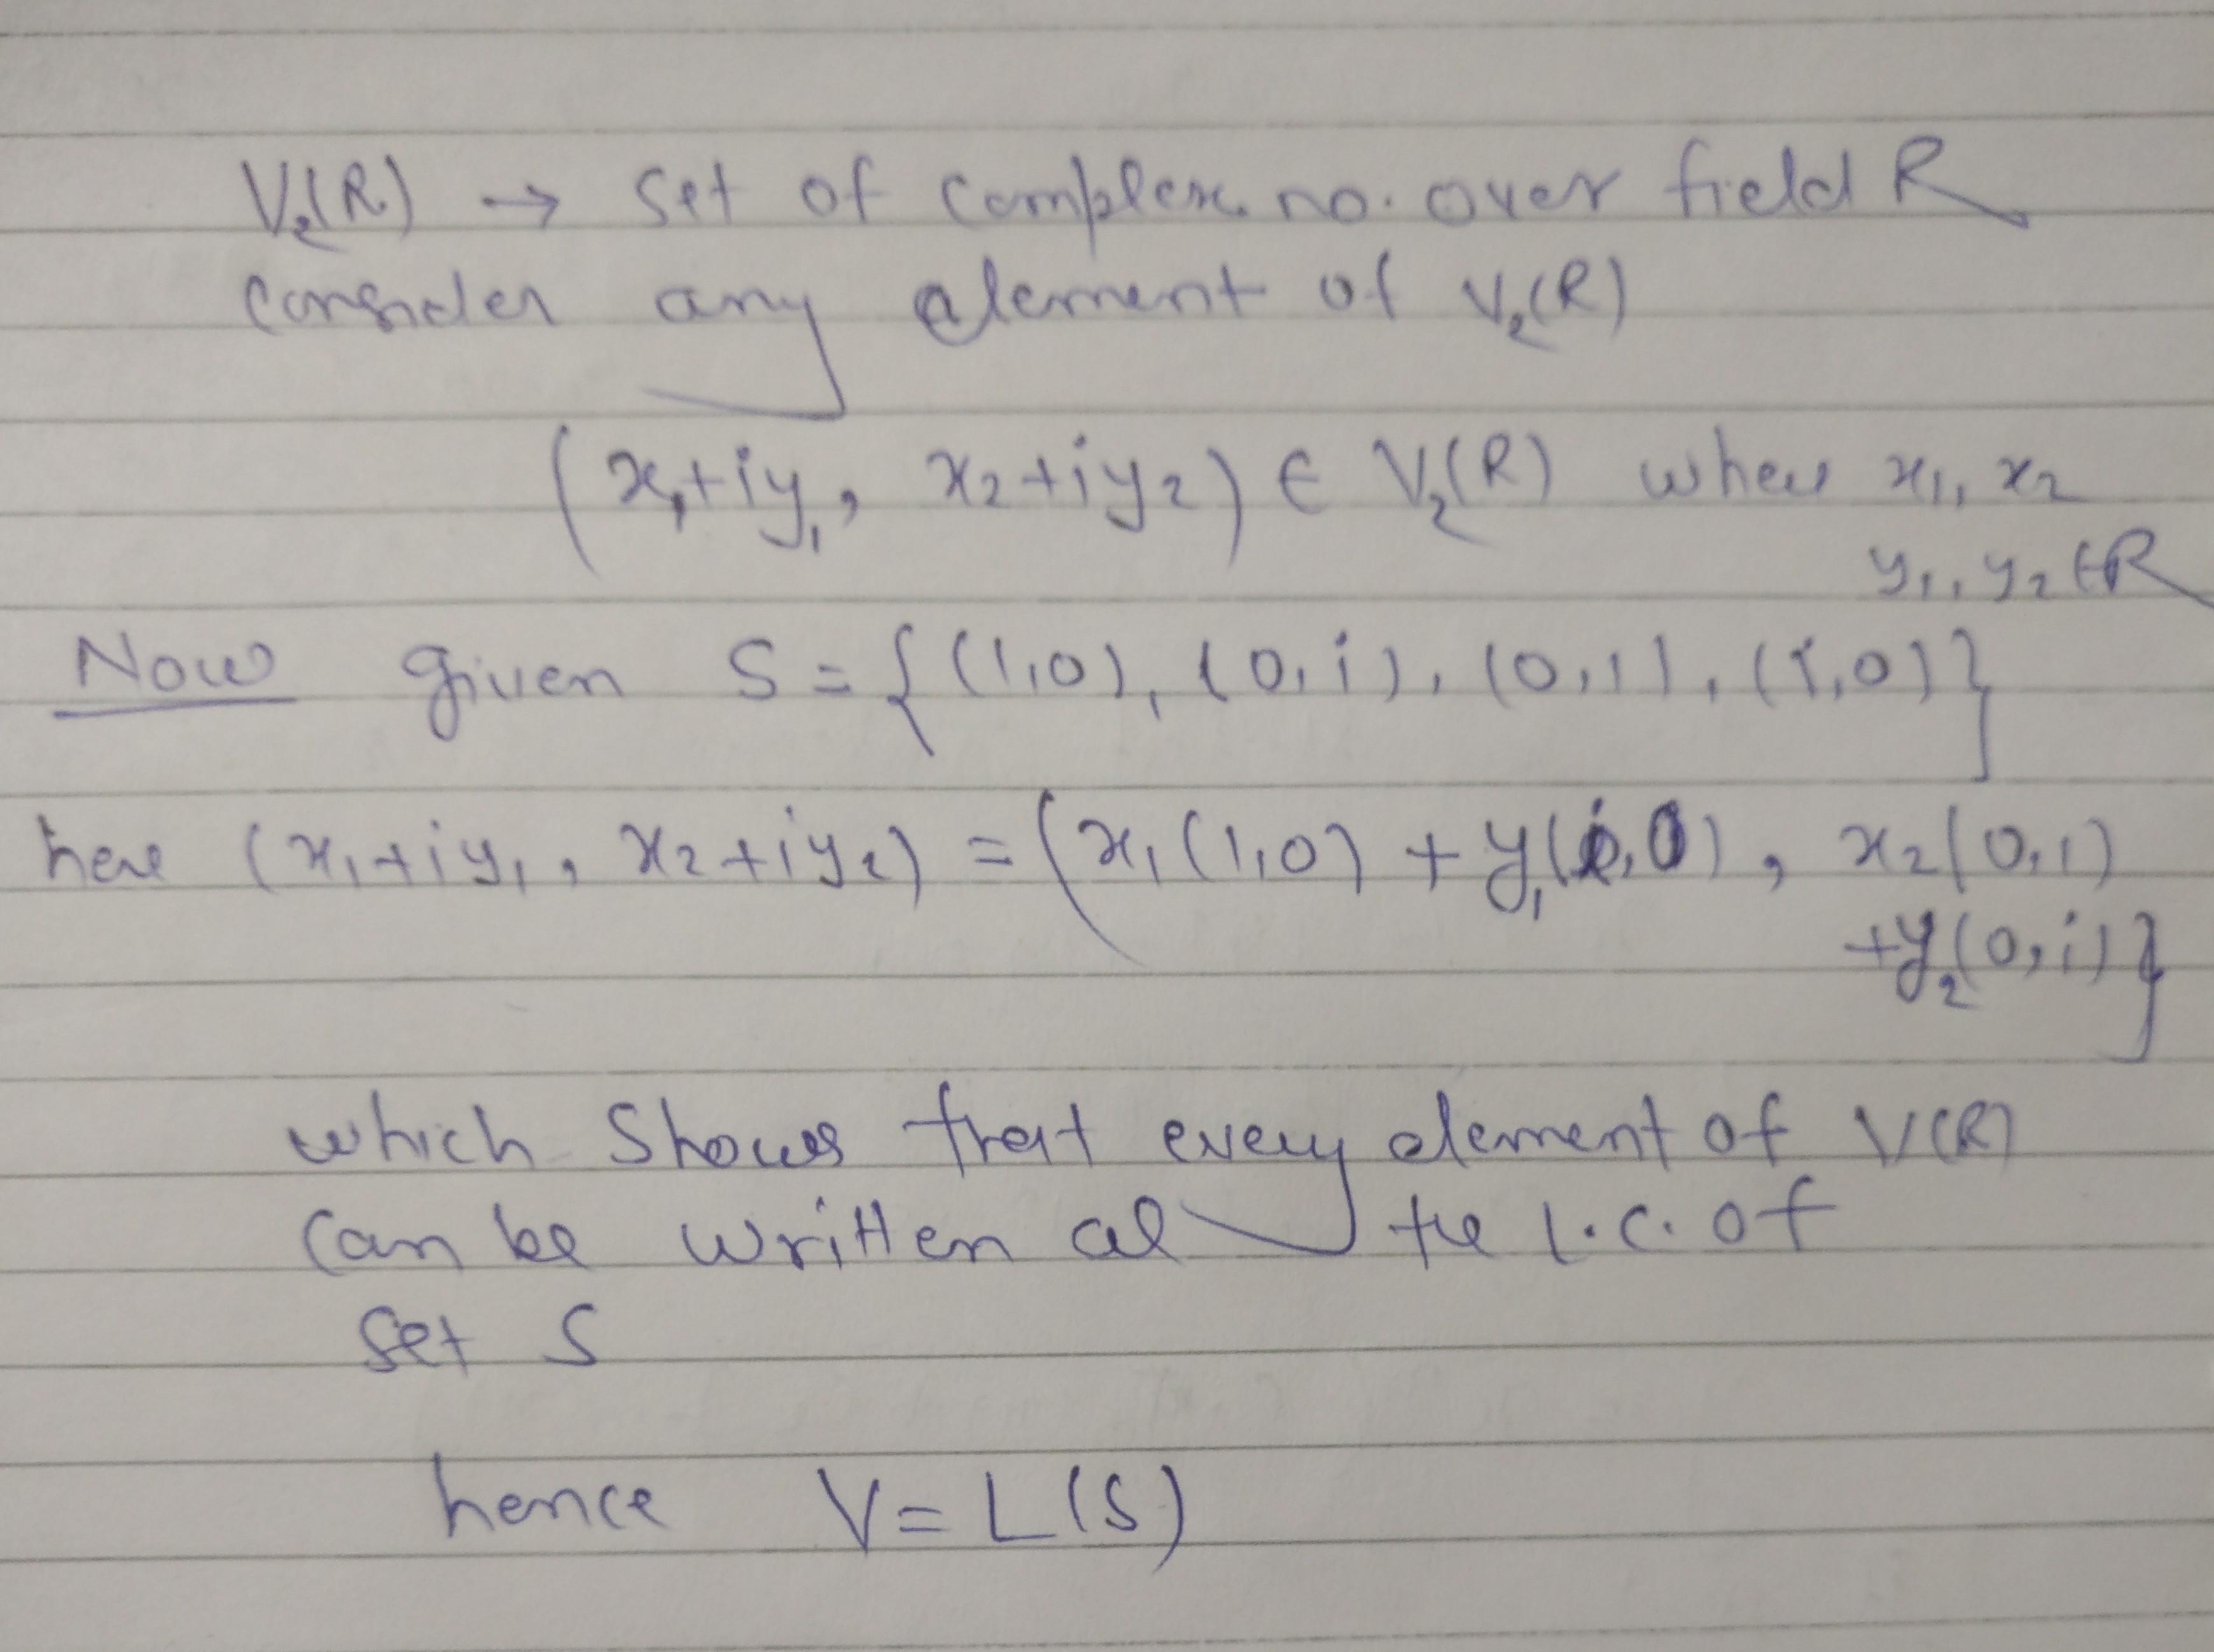 V₂(R) → set of complex no. over field R
consider any element of V₂(R)
(x₁+iy₁, x₂+iy₂) ∈ V₂(R) where x₁, x₂
y₁, y₂ ∈ R
Now given S = {(1,0), (0,i), (0,1), (i,0)}
here (x₁+iy₁, x₂+iy₂) = (x₁(1,0) + y₁(i,0), x₂(0,1)
+y₂(0,i)}
which shows that every element of V(R)
can be written as the l.c. of
set S
hence V = L(S)